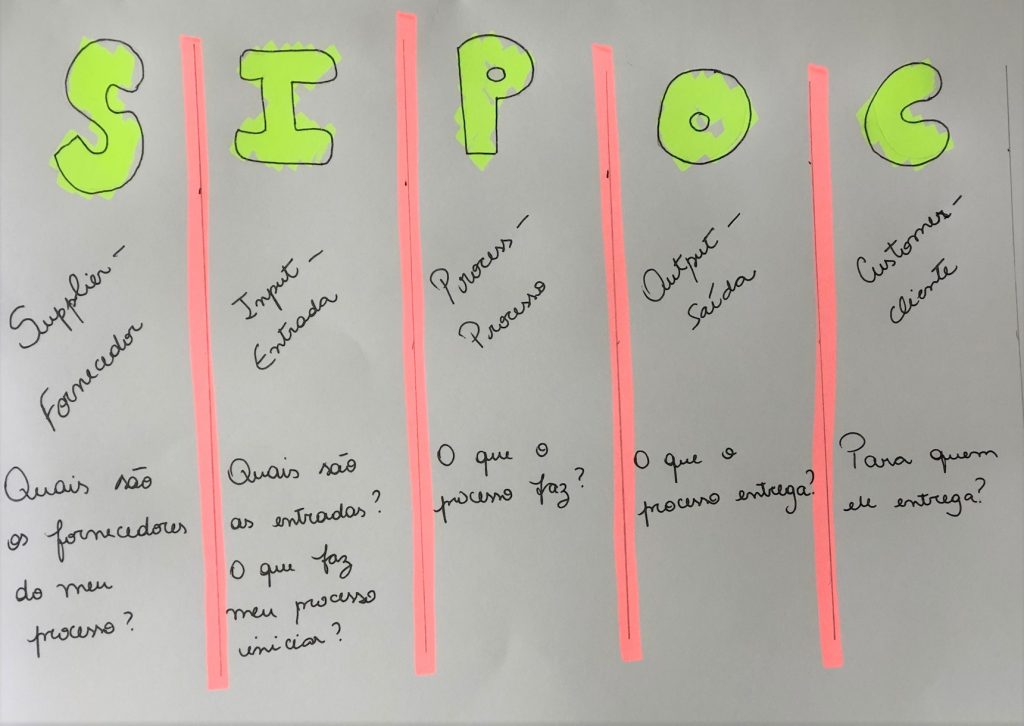 S
I
P
O
C
Supplier -
Fornecedor
Input -
Entrada
Process -
Processo
Output -
Saída
Customer -
cliente
Quais são
os fornecedores
do meu
processo?
Quais são
as entradas?
O que faz
meu processo
iniciar?
O que o
processo faz?
O que o
processo entrega?
Para quem
ele entrega?